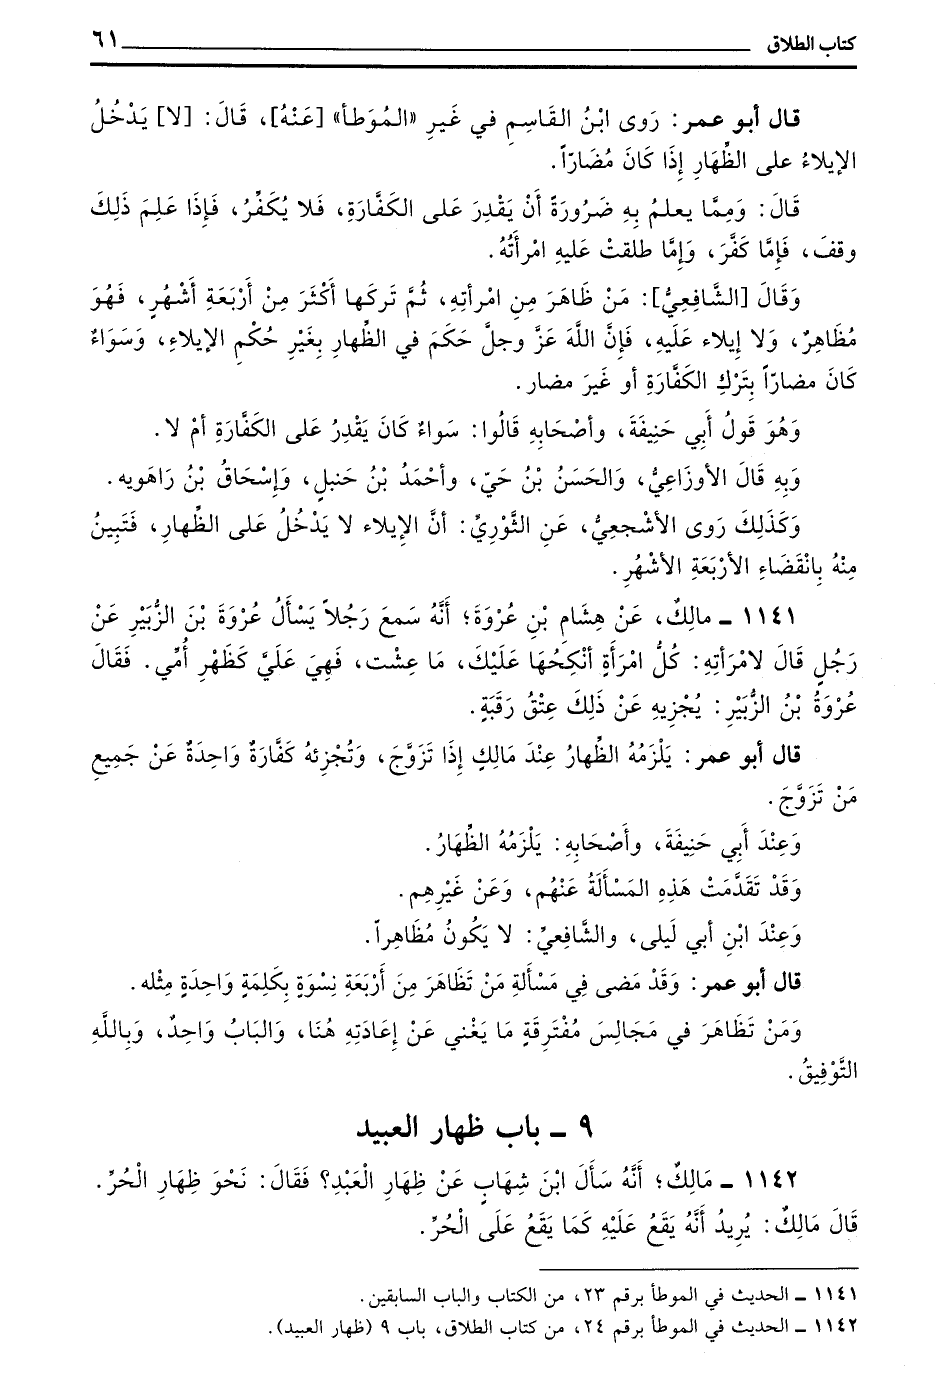 كتاب الطلاق ٦١
قال أبو عمر: رَوى ابْنُ القَاسِمِ في غَيرِ «المُوَطأ» [عَنْهُ]، قَالَ: [لا] يَدْخُلُ
الإيلاءُ على الظِّهَارِ إِذَا كَانَ مُضَارّاً.
قَالَ: وَمِمَّا يعلمُ بِهِ ضَرُورَةً أَنْ يَقْدِرَ على الكَفَّارَةِ، فَلا يُكَفِّرُ، فَإِذَا عَلِمَ ذَلِكَ
وقفَ، فَإِمَّا كَفَّرَ، وَإِمَّا طلقتْ عَليهِ امْرأَتُهُ.
وَقَالَ [الشَّافِعِيُّ]: مَنْ ظَاهَرَ مِنِ امْرأتِهِ، ثُمَّ تَركَها أَكْثَرَ مِنْ أَرْبَعَةِ أَشْهُرٍ، فَهُوَ
مُظَاهِرٌ، وَلا إِيلاء عَلَيهِ، فَإِنَّ اللَّهَ عَزَّ وجلَّ حَكَمَ في الظِّهارِ بِغَيْرِ حُكْمِ الإيلاءِ، وَسَوَاءٌ
كَانَ مضارّاً بِتَرْكِ الكَفَّارَةِ أو غَيرَ مضار.
وَهُوَ قَولُ أَبِي حَنِيفَةَ، وأصْحَابِهِ قَالُوا: سَواءٌ كَانَ يَقْدِرُ عَلى الكَفَّارَةِ أمْ لا.
وَبِهِ قَالَ الأوزَاعِيُّ، وَالحَسَنُ بْنُ حَيّ، وأحْمَدُ بْنُ حَنبلٍ، وَإِسْحَاقُ بْنُ رَاهَويه.
وَكَذَلِكَ رَوى الأشْجعِيُّ، عَنِ الثَّوْرِيِّ: أنَّ الإيلاء لا يَدْخُلُ عَلى الظِّهارِ، فَتَبِينُ
مِنْهُ بِانْقَضَاءِ الأرْبَعَةِ الأشْهُرِ.
١١٤١ ـ مالِكٌ، عَنْ هِشَامِ بْنِ عُرْوَةَ؛ أَنَّهُ سَمعَ رَجُلاً يَسْأَلُ عُرْوَةَ بْنَ الزُّبَيْرِ عَنْ
رَجُلٍ قَالَ لامْرَأَتِهِ: كُلُّ امْرَأَةٍ أنْكِحُهَا عَلَيْكَ، مَا عِشْت، فَهِيَ عَلَيَّ كَظَهْرِ أُمِّي. فَقَالَ
عُرْوَةُ بْنُ الزُّبَيْرِ: يُجْزِيهِ عَنْ ذَلِكَ عِتْقُ رَقَبَةٍ.
قال أبو عمر: يَلْزَمُهُ الظِّهارُ عِنْدَ مَالِكٍ إِذَا تَزَوَّجَ، وَتُجْزئهُ كَفَّارَةٌ وَاحِدَةٌ عَنْ جَمِيعِ
مَنْ تَزَوَّجَ.
وَعِنْدَ أَبِي حَنِيفَةَ، وَأَصْحَابِهِ: يَلْزَمُهُ الظِّهَارُ.
وَقَدْ تَقَدَّمَتْ هَذِهِ المَسْأَلَةُ عَنْهُم، وَعَنْ غَيْرِهِم.
وَعِنْدَ ابْنِ أبي لَيلى، والشَّافِعيِّ: لا يَكُونُ مُظَاهِراً.
قال أبو عمر: وَقَدْ مَضى فِي مَسْأَلَةِ مَنْ تَظَاهَرَ مِنَ أَرْبَعَةِ نِسْوَةٍ بِكَلِمَةٍ وَاحِدَةٍ مِثْله.
وَمَنْ تَظَاهَرَ في مَجَالِسَ مُفْتَرِقَةٍ مَا يَغْني عَنْ إِعَادَتِهِ هُنَا، وَالبَابُ وَاحِدٌ، وَبِاللَّهِ
التَّوْفِيقُ.
٩ ـ باب ظهار العبيد
١١٤٢ ـ مَالِكٌ؛ أَنَّهُ سَأَلَ ابْنَ شِهَابٍ عَنْ ظِهَارِ الْعَبْدِ؟ فَقَالَ: نَحْوَ ظِهَارِ الْحُرِّ.
قَالَ مَالِكٌ: يُرِيدُ أَنَّهُ يَقَعُ عَلَيْهِ كَمَا يَقَعُ عَلَى الْحُرِّ.
١١٤١ ـ الحديث في الموطأ برقم ٢٣، من الكتاب والباب السابقين.
١١٤٢ ـ الحديث في الموطأ برقم ٢٤، من كتاب الطلاق، باب ٩ (ظهار العبيد).